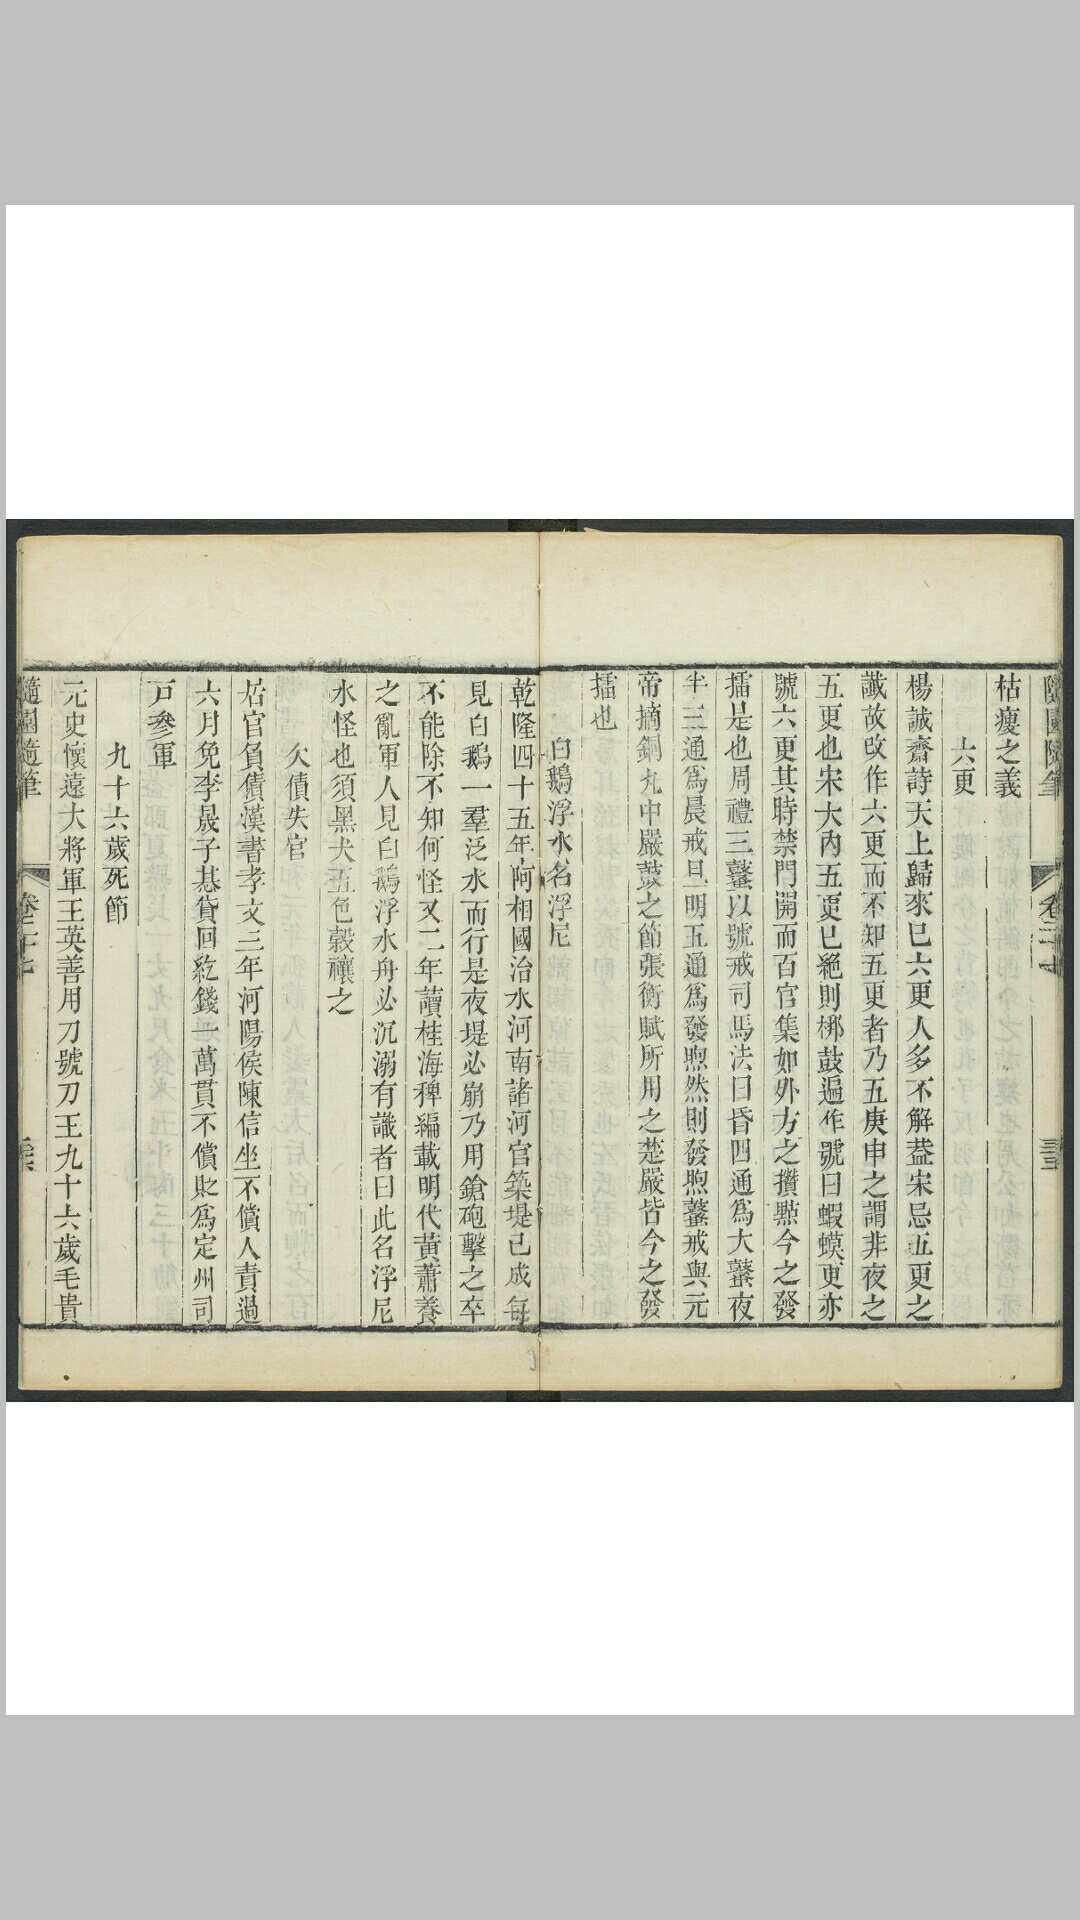 隨園隨筆 卷二十七
枯瘦之義
六更
楊誠齋詩天上歸來已六更人多不解葢宋忌五更之
讖故改作六更而不知五更者乃五庚申之謂非夜之
五更也宋大內五更已絕則梆鼓遍作號曰蝦蟆更亦
號六更其時禁門開而百官集如外方之攢㸃今之發
擂是也周禮三鼜以號戒司馬法曰昏四通爲大鼜夜
半三通爲晨戒旦明五通爲發昫然則發昫鼜戒與元
帝摘銅丸中嚴鼓之節張衡賦所用之楚嚴皆今之發
擂也
白鵝浮水名浮尼
乾隆四十五年阿相國治水河南諸河官築堤已成每
見白鵝一羣泛水而行是夜堤必崩乃用鎗砲擊之卒
不能除不知何怪又二年讀桂海稗編載明代黃蕭養
之亂軍人見白鵝浮水舟必沉溺有識者曰此名浮尼
水怪也須黑犬五色穀禳之
欠債失官
居官負債漢書孝文三年河陽侯陳信坐不償人責過
六月免李晟子惎貸回紇錢一萬貫不償貶爲定州司
戸參軍
九十六歲死節
元史懷遠大將軍王英善用刀號刀王九十六歲毛貴
隨園隨筆 卷二十七